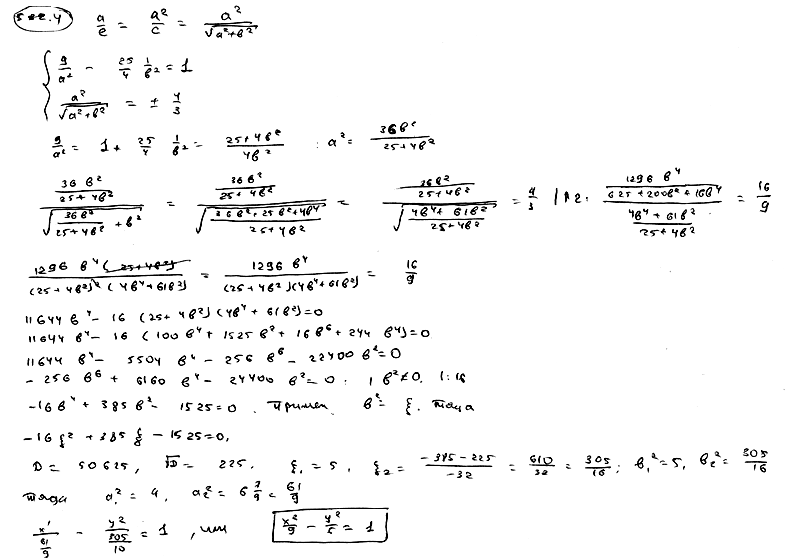 a/e = a²/c = a²/√(a²+b²)
{ 9/a² - 25/4 1/b² = 1
a²/√(a²+b²) = ± 4/3
9/a² = 1 + 25/4 1/b² = (25+4b²)/(4b²) : a² = 36b²/(25+4b²)
(36b²/(25+4b²))/√(36b²/(25+4b²) + b²) = (36b²/(25+4b²))/√((36b²+25b²+4b⁴)/(25+4b²)) = (36b²/(25+4b²))/√((4b⁴+61b²)/(25+4b²)) = 4/3 |^2: (1296b⁴/(625+200b²+16b⁴))/((4b⁴+61b²)/(25+4b²)) = 16/9
1296b⁴(25+4b²)/((25+4b²)²(4b⁴+61b²)) = 1296b⁴/((25+4b²)(4b⁴+61b²)) = 16/9
11644b⁴ - 16(25+4b²)(4b⁴+61b²) = 0
11644b⁴ - 16(100b⁴+1525b²+16b⁶+244b⁴) = 0
11644b⁴ - 5504b⁴ - 256b⁶ - 22400b² = 0
-256b⁶ + 6160b⁴ - 24400b² = 0 : | b²≠0, |:16
-16b⁴ + 385b² - 1525 = 0. b² = ξ. тогда
-16ξ² + 385ξ - 1525 = 0,
D = 50625, √D = 225. ξ₁ = 5, ξ₂ = (-385-225)/-32 = 610/32 = 305/16; b₁² = 5, b₂² = 305/16
тогда a₁² = 4, a₂² = 6 7/9 = 61/9
x²/(61/9) - y²/(305/10) = 1, или x²/9 - y²/5 = 1